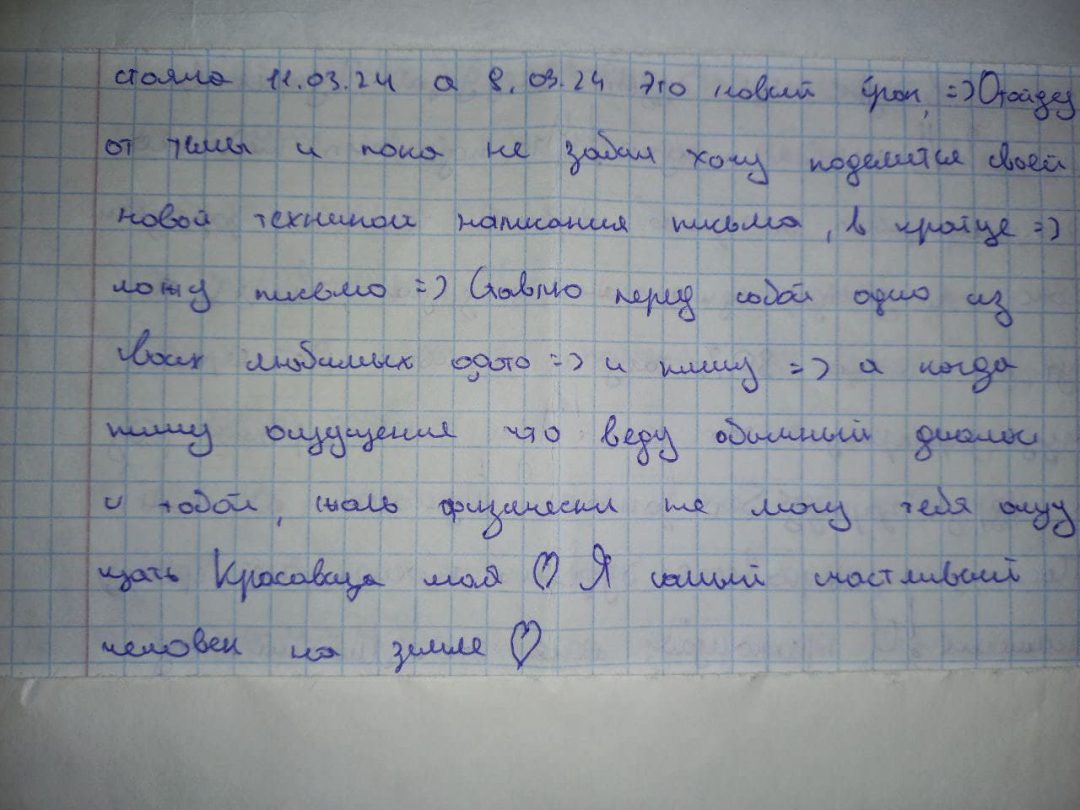 стояла 11.03.24 а 8.03.24 это новый срок, => Отойду
от темы и пока не забыл хочу поделится своей
новой техникой написания письма, в кратце =>
ложу письмо => Ставлю перед собой одно из
своих любимых фото => и пишу => а когда
пишу ощущение что веду обычный диалог
с тобой, жаль физически не могу тебя ощу
щать Красавица моя ♡ Я самый счастливый
человек на земле ♡